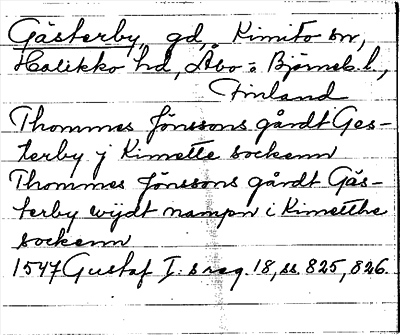 Gästerby gd, Kimito sn,
Halikko hd, Åbo o Björneb. l.,
Finland
Thommes Jönssons gårdt Ges-
terby j Kimette sockenn
Thommes Jönssons gårdt Gäs-
terby wijdt nampn i Kimetthe
sockenn
1547 Gustaf I:s reg. 18, ss. 825, 826.